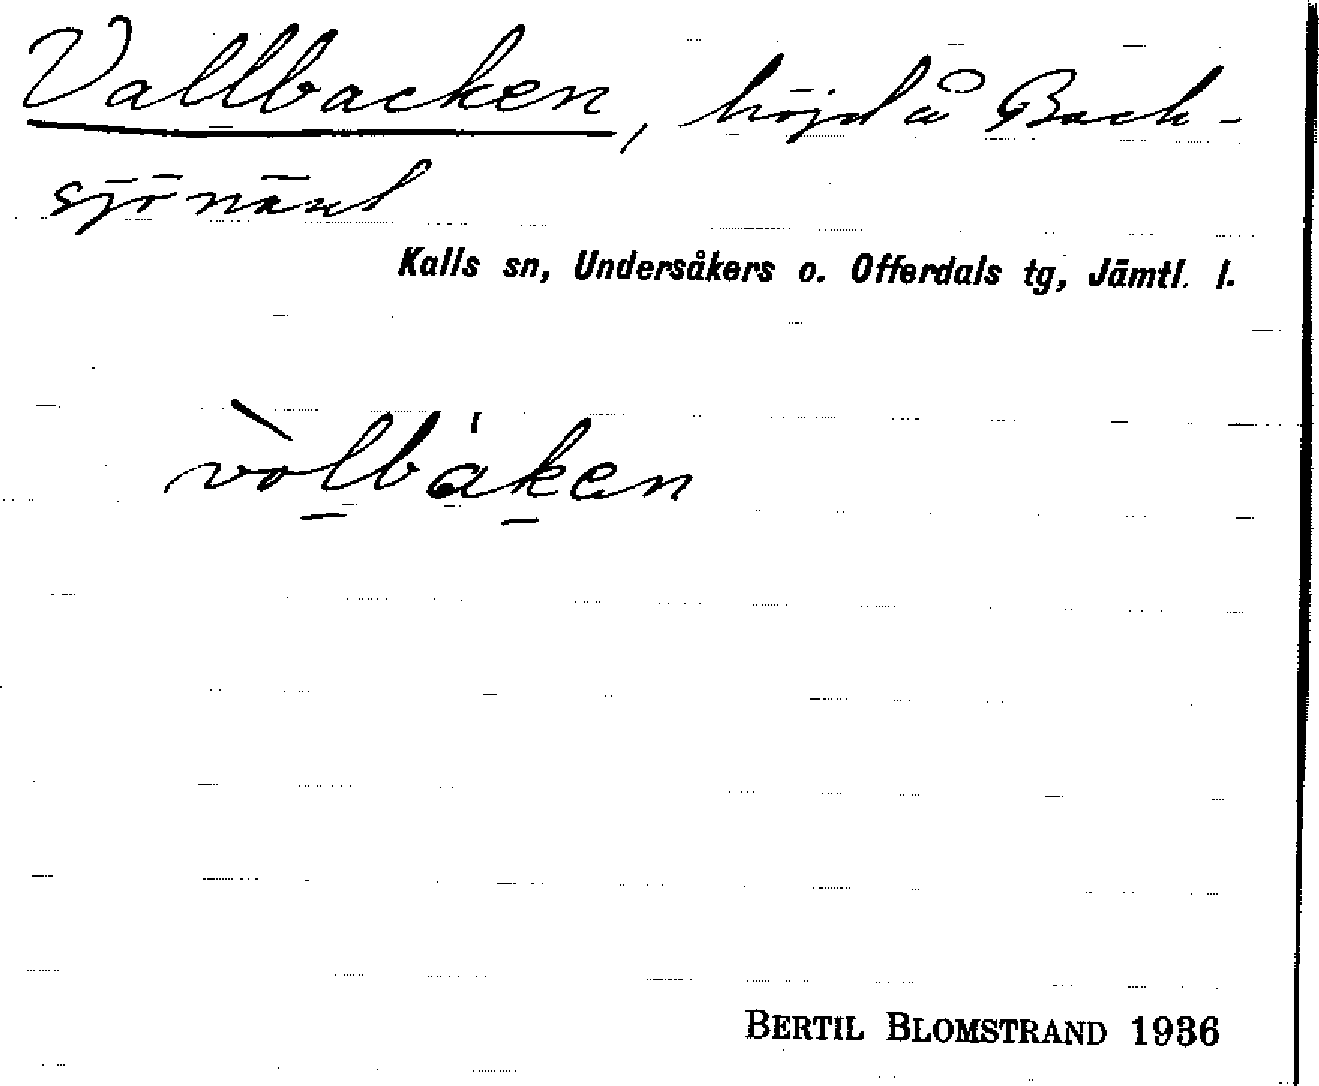 Vallbacken, höjd å Back-
sjönäset
Kalls sn, Undersåkers o. Offerdals tg, Jämtl. l.
vòlbáken
BERTIL BLOMSTRAND 1936